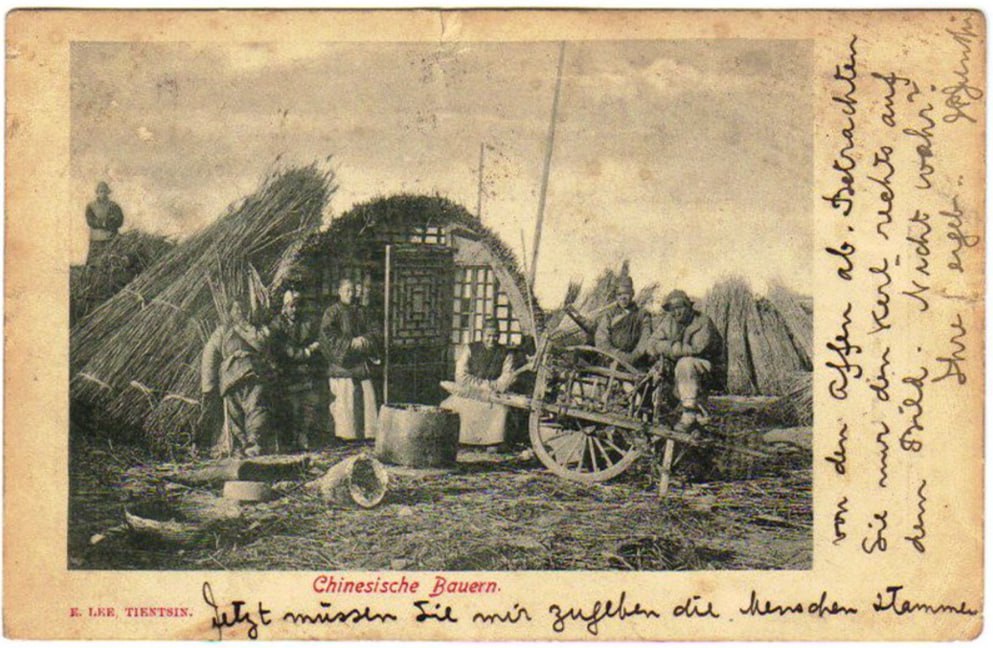 Chinesische Bauern.
E. LEE, TIENTSIN.
Jetzt müssen Sie mir zugleben die Menschen stammen
von den Affen ab. Betrachten
Sie nur den Kerl rechts auf
dem Bild. Nicht wahr?
Ihre ergeb.